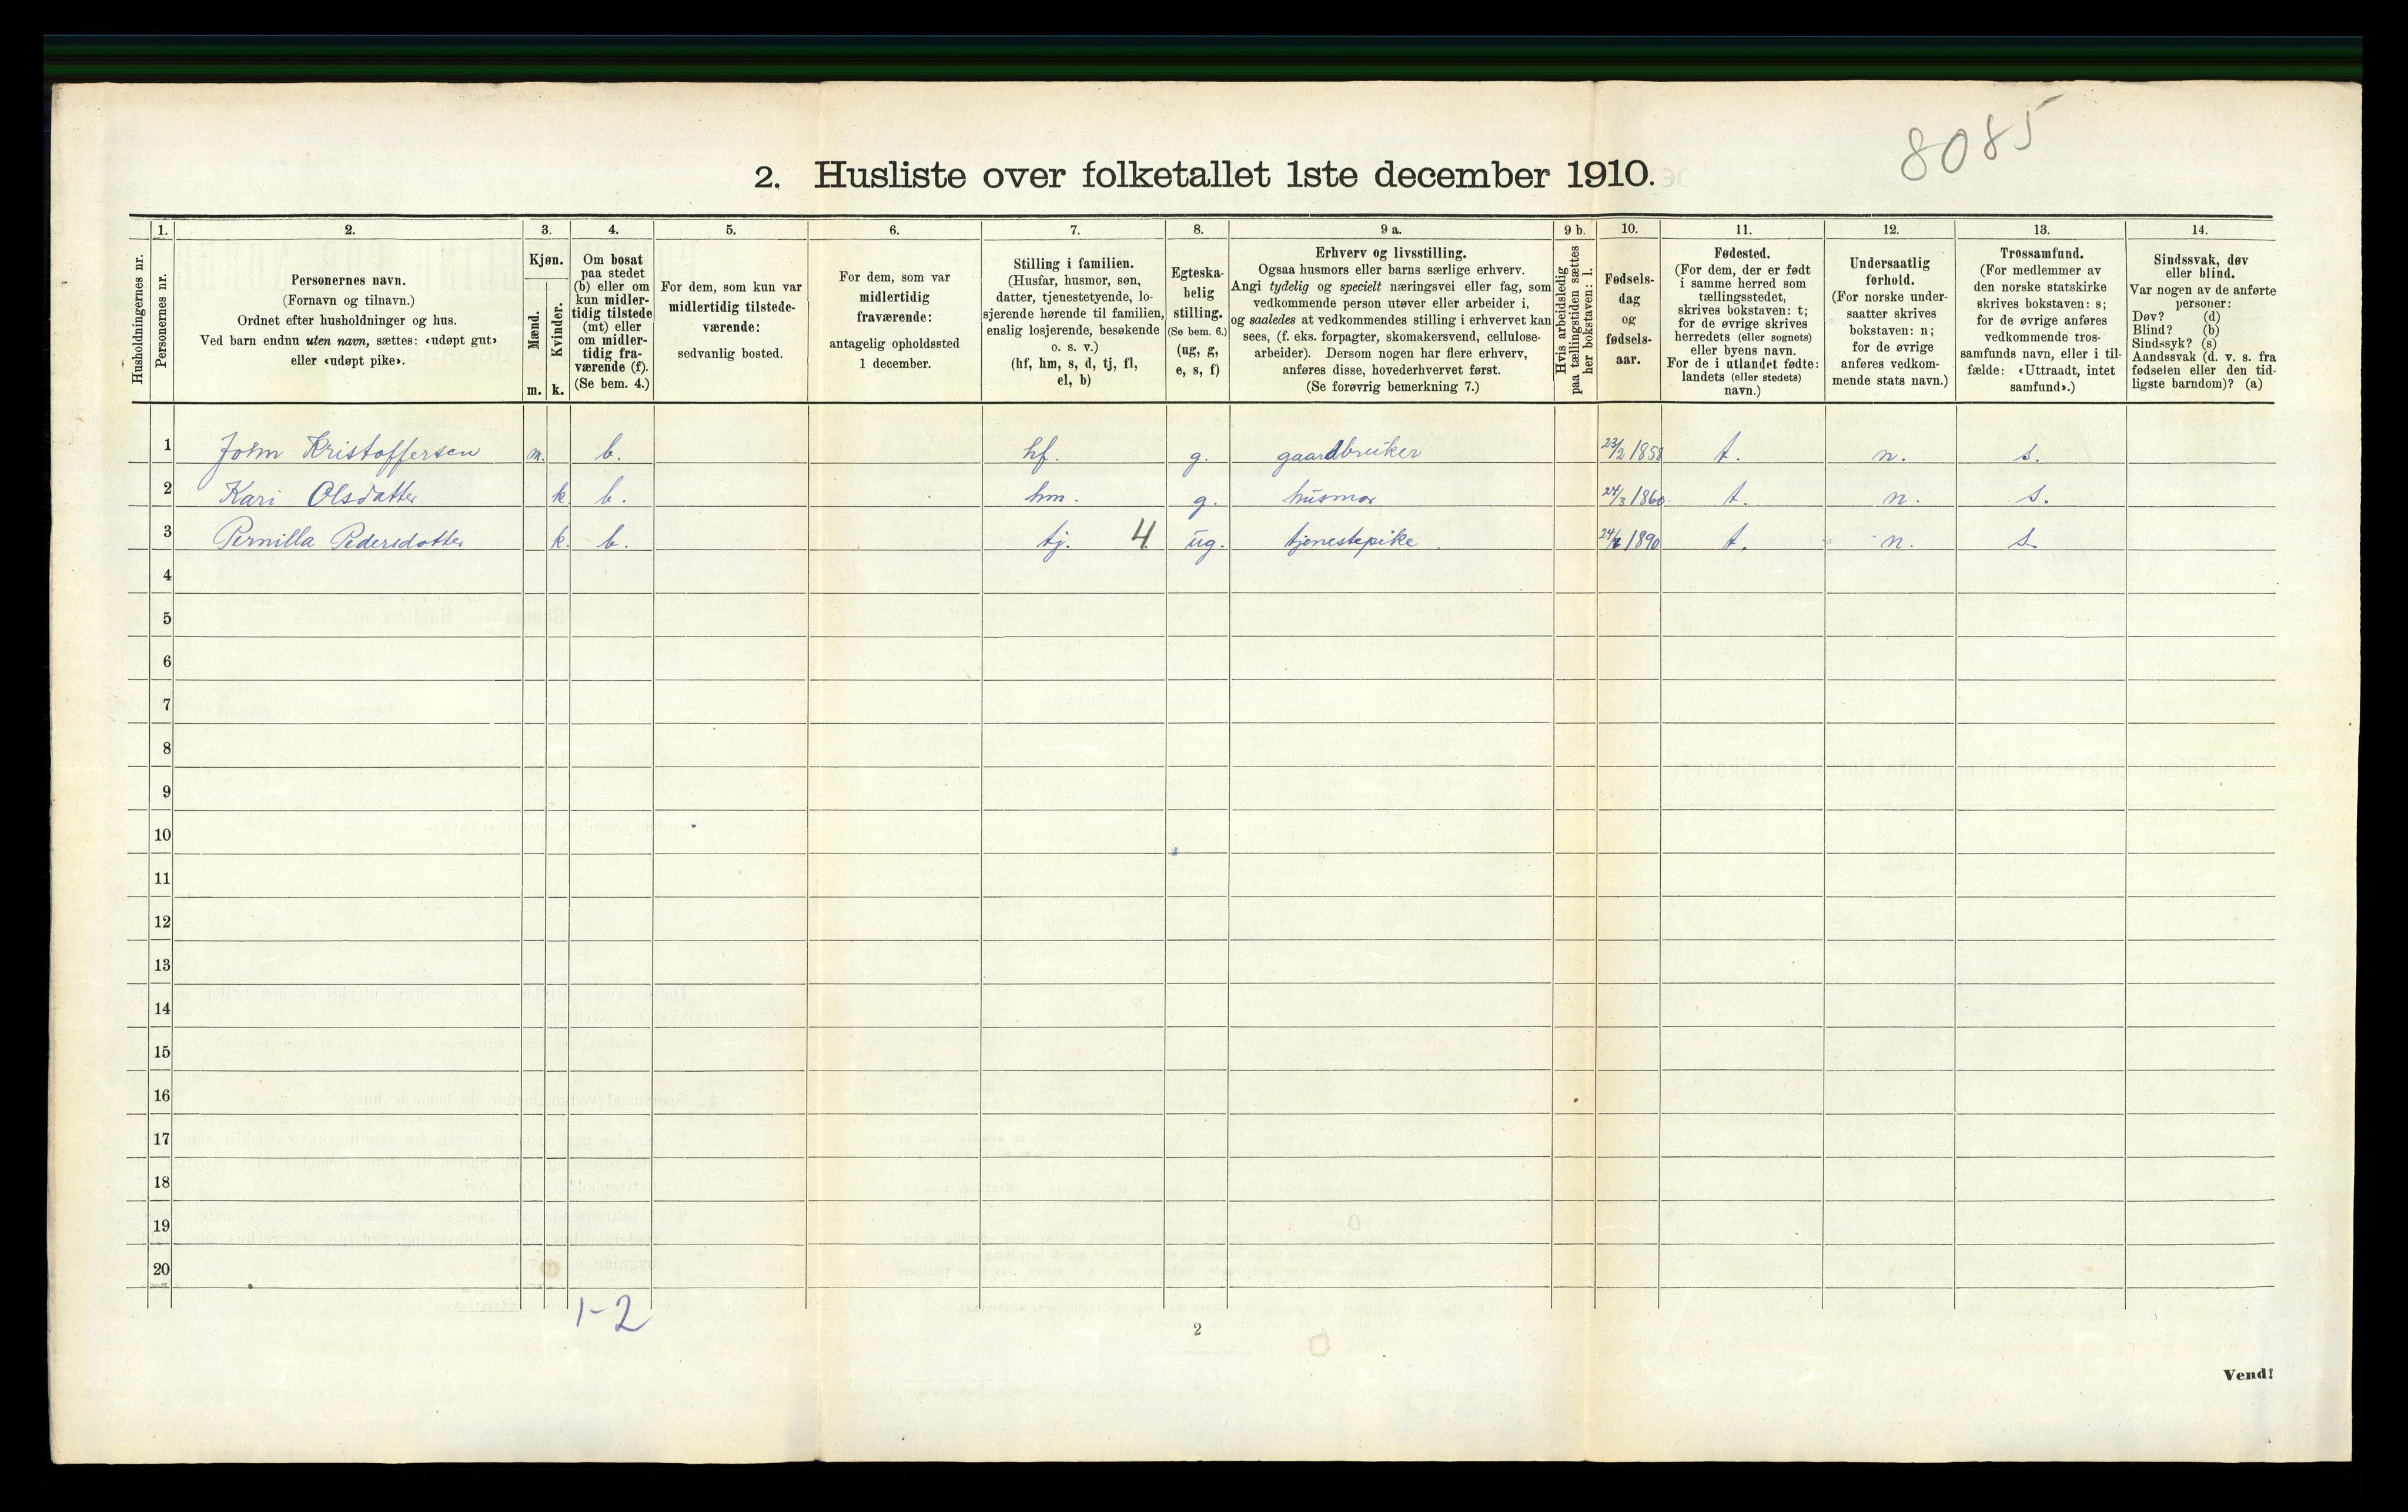 8085
2. Husliste over folketallet 1ste december 1910.
Husholdningernes nr.
1.
Personernes nr.
2.
Personernes navn.
(Fornavn og tilnavn.)
Ordnet efter husholdninger og hus.
Ved barn endnu uten navn, sættes: «udøpt gut»
eller «udøpt pike».
3.
Kjøn.
Mænd.
Kvinder.
m. k.
4.
Om bosat
paa stedet
(b) eller om
kun midler-
tidig tilstede
(mt) eller
om midler-
tidig fra-
værende (f).
(Se bem. 4.)
5.
For dem, som kun var
midlertidig tilstede-
værende:
sedvanlig bosted.
6.
For dem, som var
midlertidig
fraværende:
antagelig opholdssted
1 december.
7.
Stilling i familien.
(Husfar, husmor, søn,
datter, tjenestetyende, lo-
sjerende hørende til familien,
enslig losjerende, besøkende
o. s. v.)
(hf, hm, s, d, tj, fl,
el, b)
8.
Egteska-
belig
stilling.
(Se bem. 6.)
(ug, g,
e, s, f)
9 a.
Erhverv og livsstilling.
Ogsaa husmors eller barns særlige erhverv.
Angi tydelig og specielt næringsvei eller fag, som
vedkommende person utøver eller arbeider i,
og saaledes at vedkommendes stilling i erhvervet kan
sees, (f. eks. forpagter, skomakersvend, cellulose-
arbeider). Dersom nogen har flere erhverv,
anføres disse, hovederhvervet først.
(Se forøvrig bemerkning 7.)
9 b.
Hvis arbeidsledig
paa tællingstiden sættes
her bokstaven: l.
10.
Fødsels-
dag
og
fødsels-
aar.
11.
Fødested.
(For dem, der er født
i samme herred som
tællingsstedet,
skrives bokstaven: t;
for de øvrige skrives
herredets (eller sognets)
eller byens navn.
For de i utlandet fødte:
landets (eller stedets)
navn.)
12.
Undersaatlig
forhold.
(For norske under-
saatter skrives
bokstaven: n;
for de øvrige
anføres vedkom-
mende stats navn.)
13.
Trossamfund.
(For medlemmer av
den norske statskirke
skrives bokstaven: s;
for de øvrige anføres
vedkommende tros-
samfunds navn, eller i til-
fælde: «Uttraadt, intet
samfund».)
14.
Sindssvak, døv
eller blind.
Var nogen av de anførte
personer:
Døv? (d)
Blind? (b)
Sindssyk? (s)
Aandssvak (d. v. s. fra
fødselen eller den tid-
ligste barndom)? (a)
1 John Kristoffersen m. b. hf. g. gaardbruker 23/2 1858 t. n. s.
2 Kari Olsdatter k. b. hm. g. husmor 24/3 1860 t. n. s.
3 Pernilla Pedersdatter k. b. tj. 4 ug. tjenestepike 1890 t. n. s.
4
5
6
7
8
9
10
11
12
13
14
15
16
17
18
19
20
1-2
2
Vend!